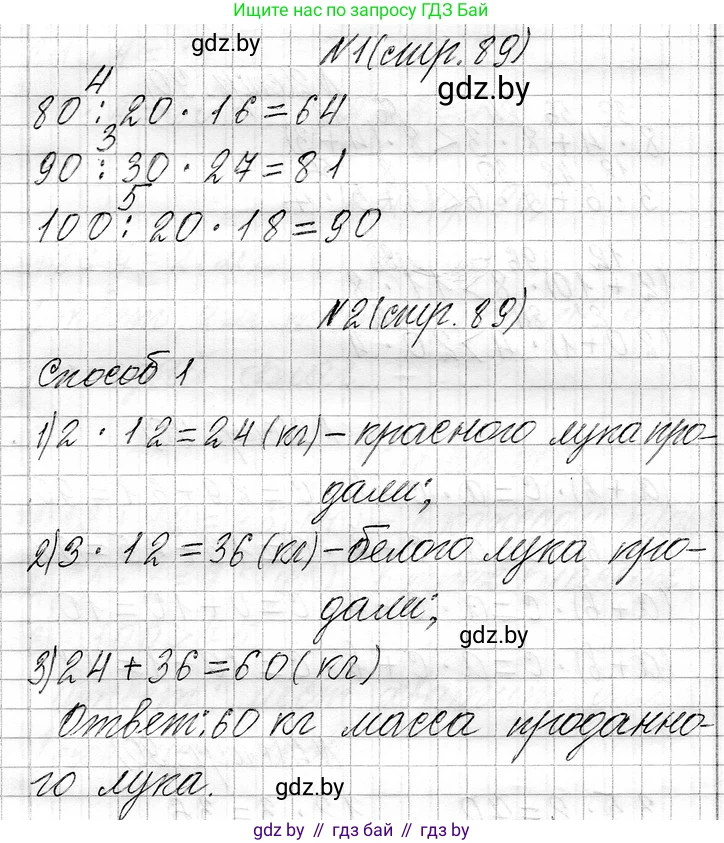 Ищите нас по запросу ГДЗ Бай
gdz.by
№1(стр. 89)
gdz.by
4
80 : 20 · 16 = 64
3
90 : 30 · 27 = 81
5
100 : 20 · 18 = 90
№2(стр. 89)
Способ 1
1) 2 · 12 = 24 (кг) – красного лука про-
дали;
2) 3 · 12 = 36 (кг) – белого лука про-
дали;
gdz.by
3) 24 + 36 = 60 (кг)
Ответ: 60 кг масса проданно-
го лука.
gdz.by
gdz by // гдз бай // gdz by